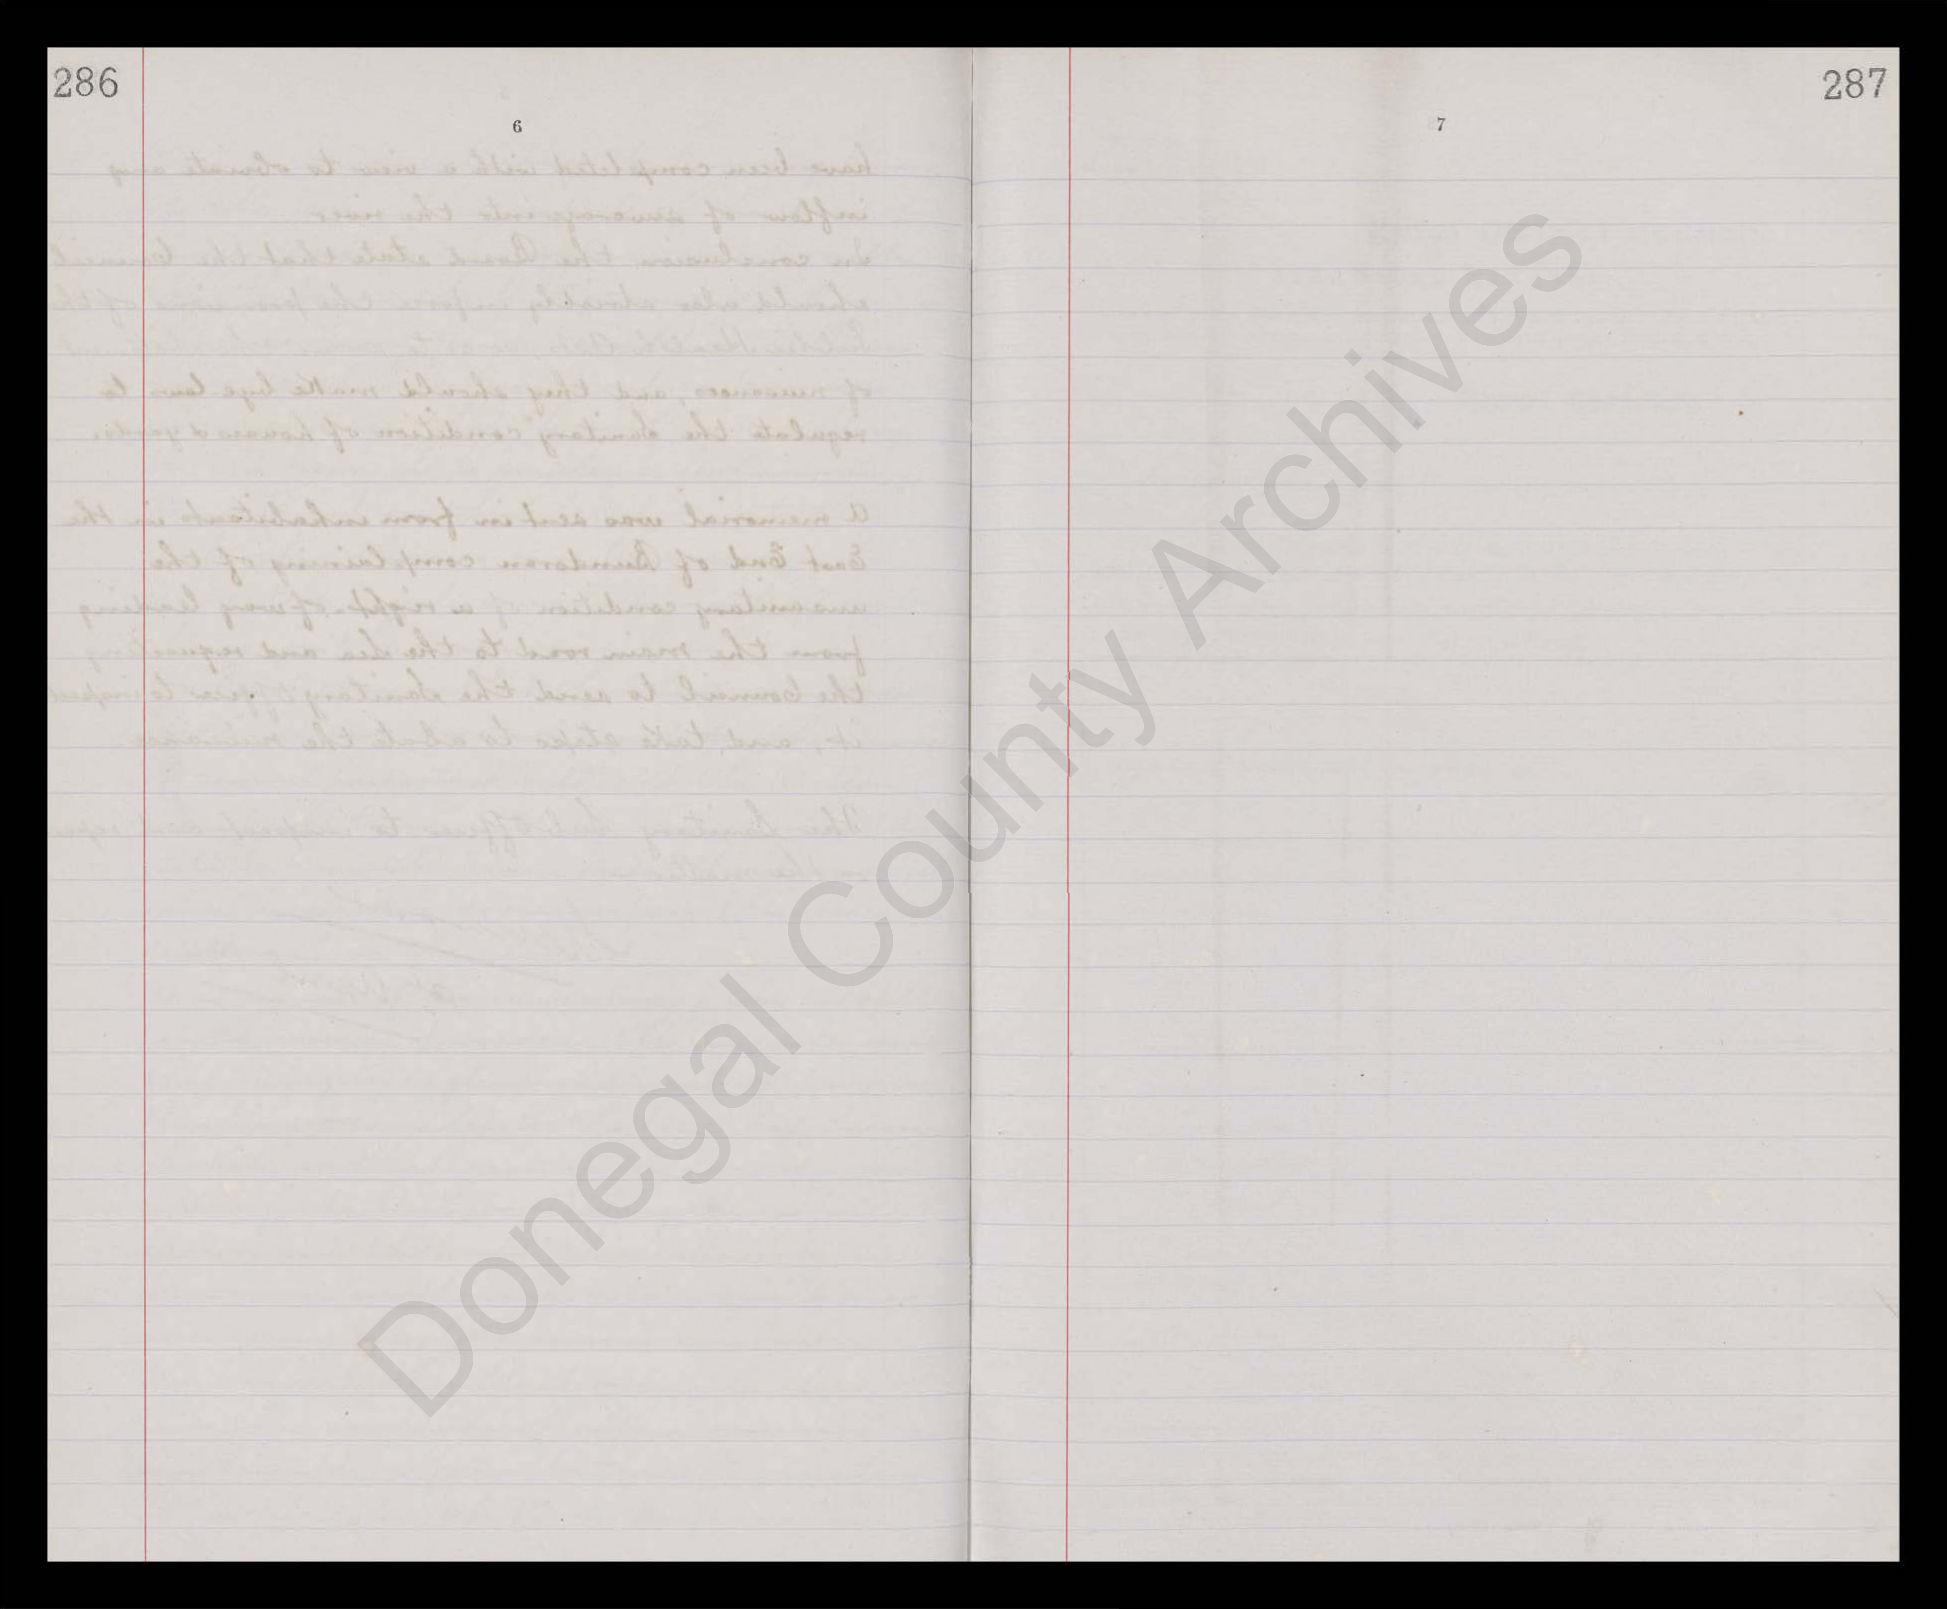 286
6
have been completed with a view to obviate any
inflow of sewerage into the river
In conclusion the Board state that the Council
should also strictly inforce the provisions of the
Public Health Acts, so as to the abatement
of nuisances, and they should make bye laws to
regulate the Sanitary condition of houses & yards.
A memorial was sent in from inhabitants in the
East End of Bundoran complaining of the
unsanitary condition of a right-of-way leading
from the main road to the sea and requesting
the Council to send the Sanitary Officer to inspect
it, and take steps to abate the nuisance.
The Sanitary Sub Officer to inspect and report
on the matter
287
7
Donegal County Archives